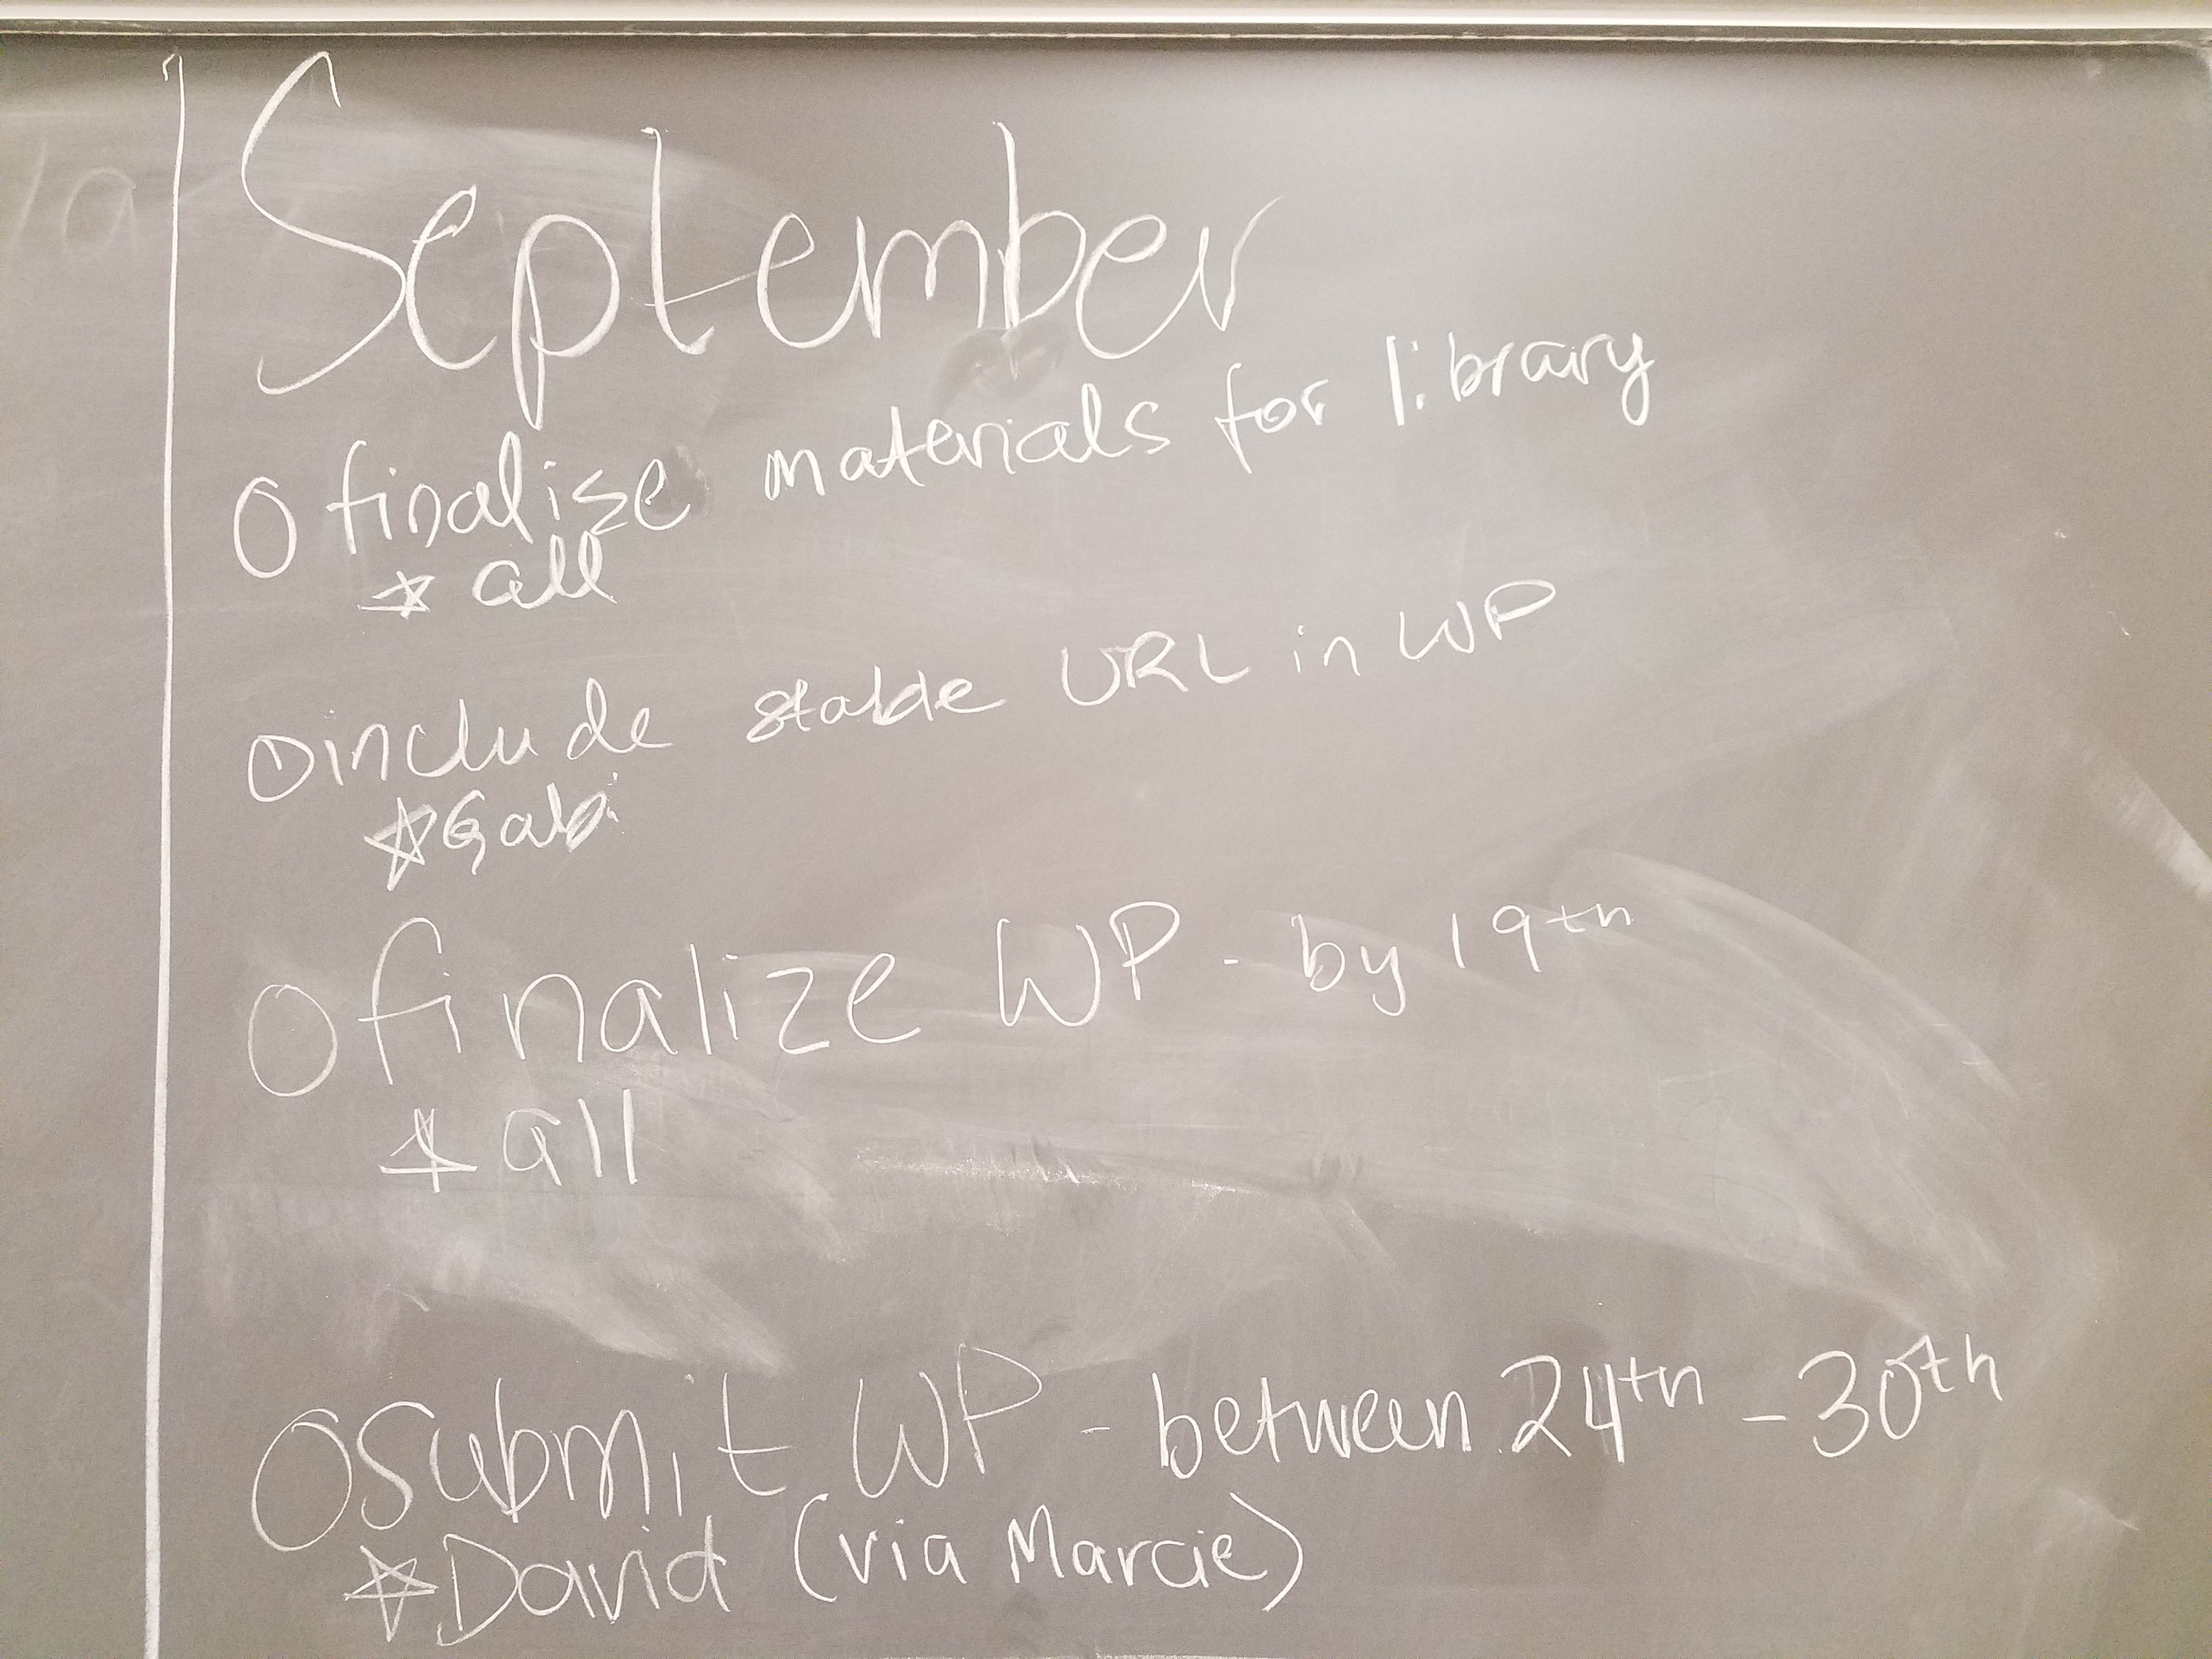 September
O finalise materials for library
☆ all
O include stable URL in WP
☆ Gabi
O finalize WP - by 19th
☆ all
O submit WP - between 24th - 30th
☆ David (via Marcie)